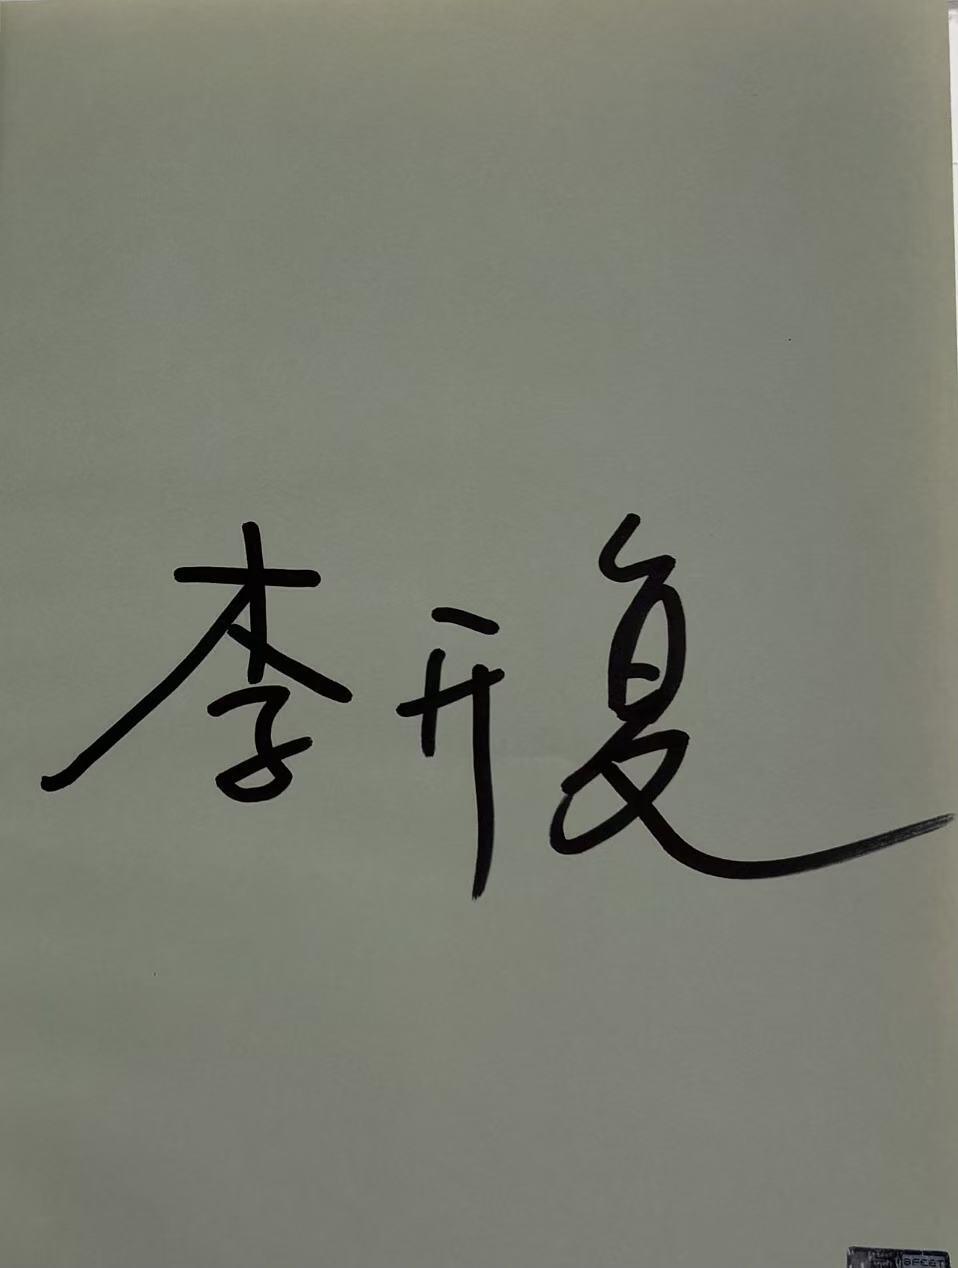 李开复